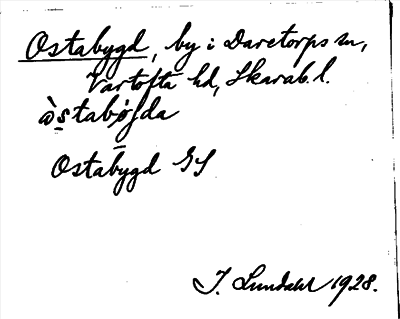 Ostabygd, by i Daretorps sn,
Vartofta hd, Skarab. l.
Ostabygd GS
I. Lundahl 1928.